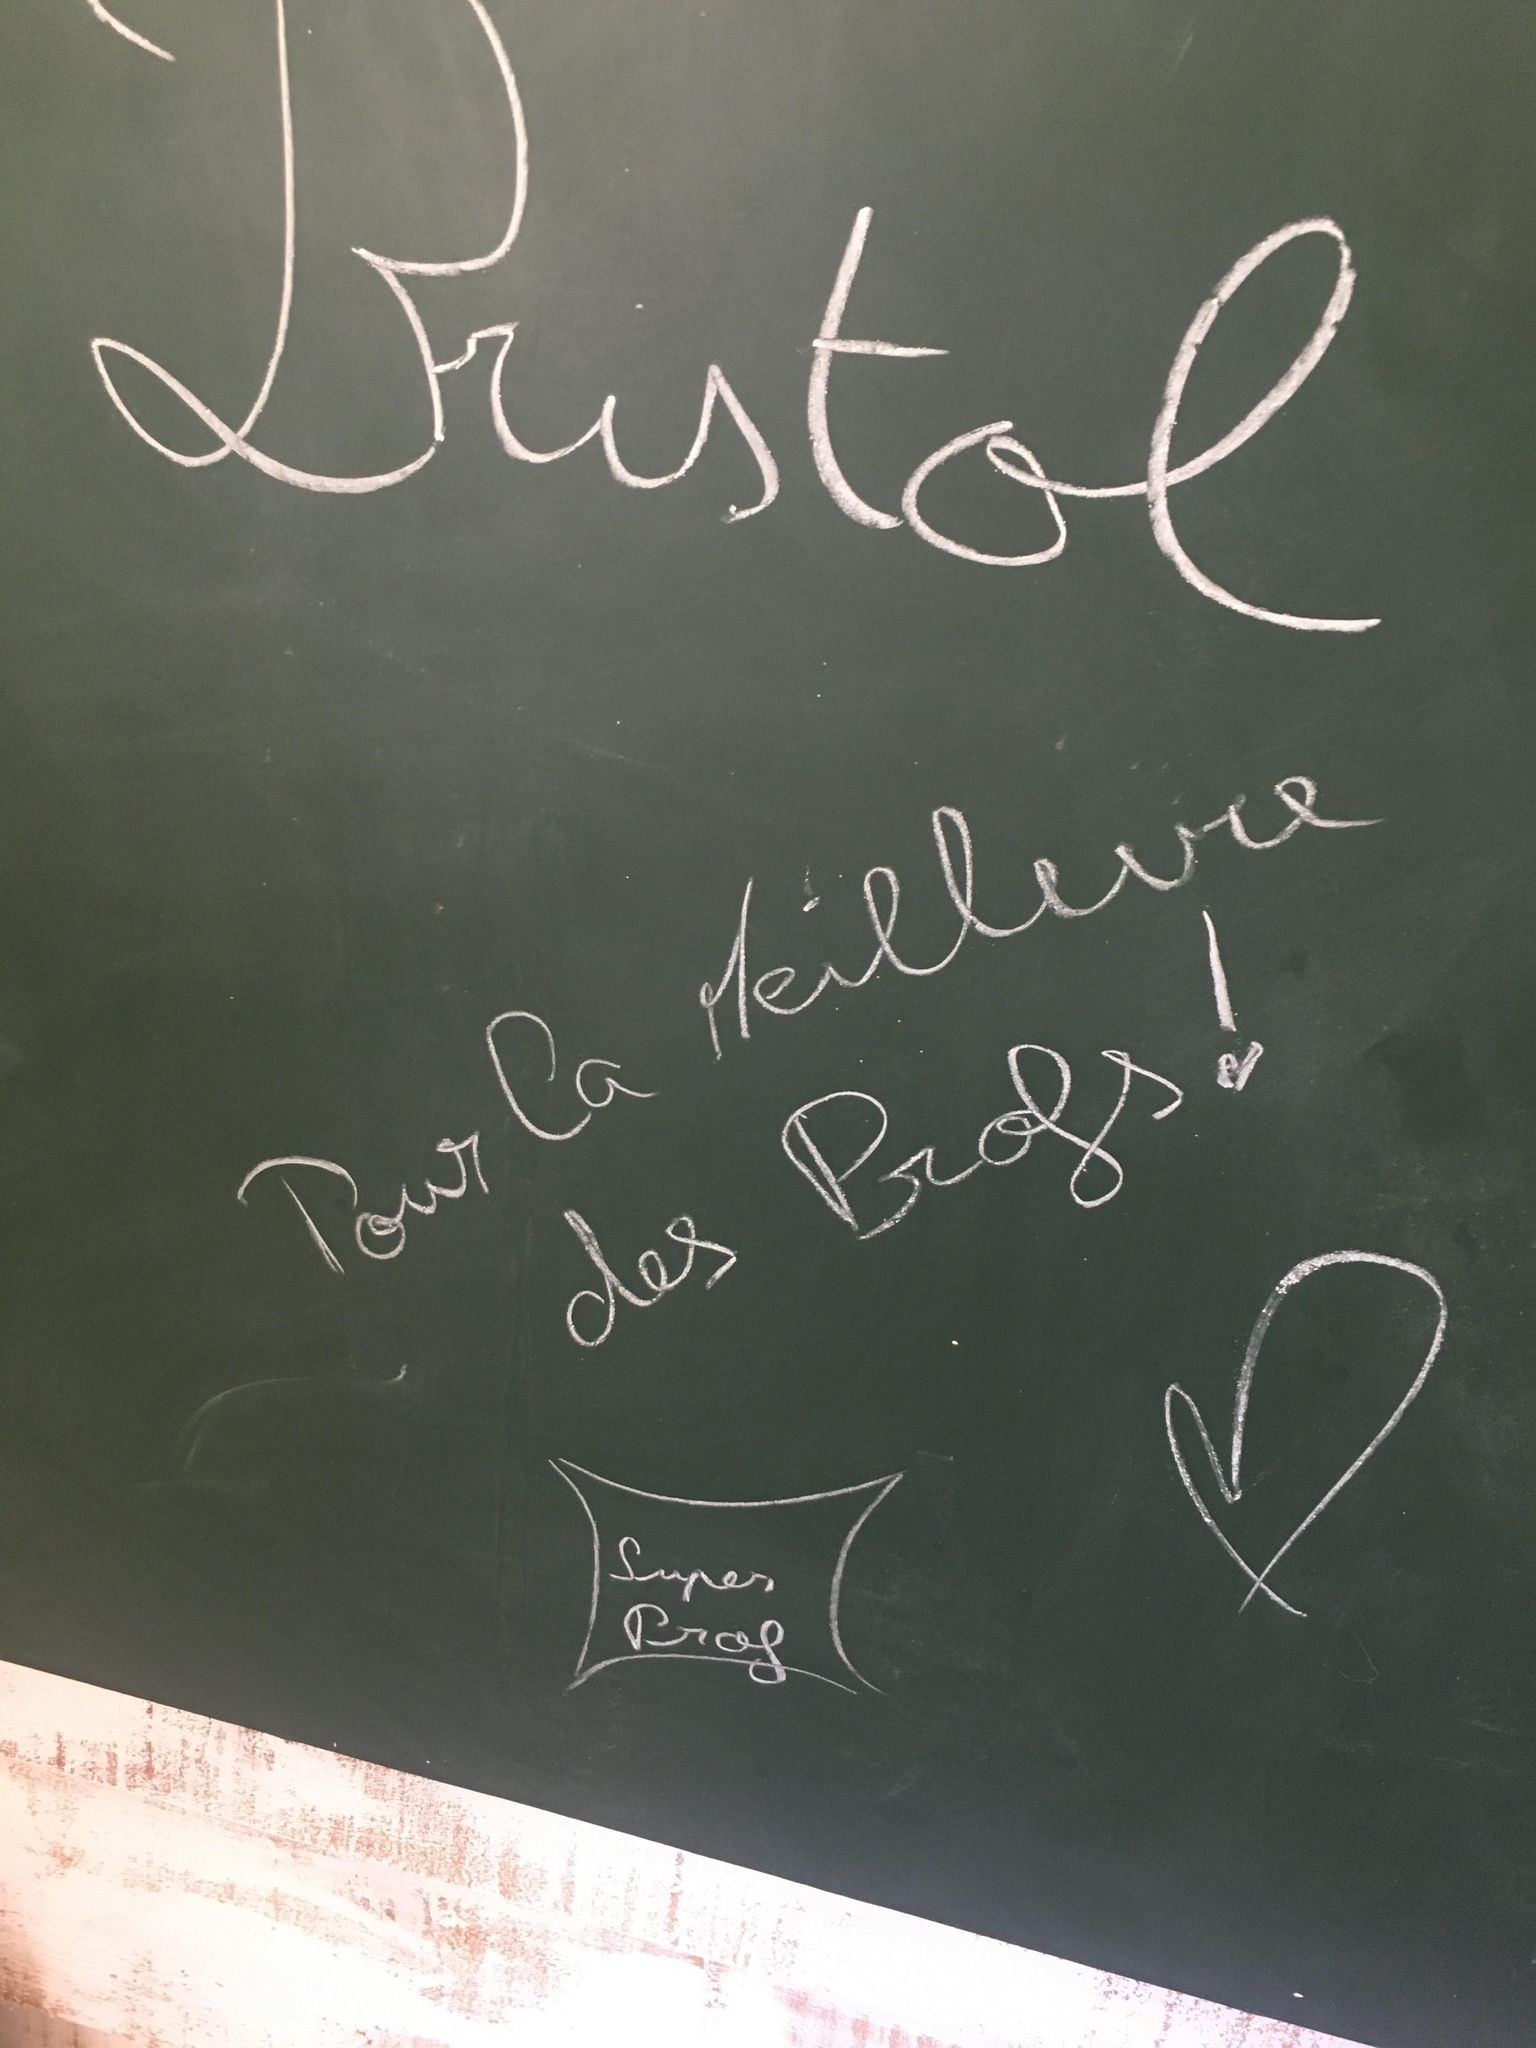 Bristol
Pour la Meilleure
des Profs !
Super
Prof